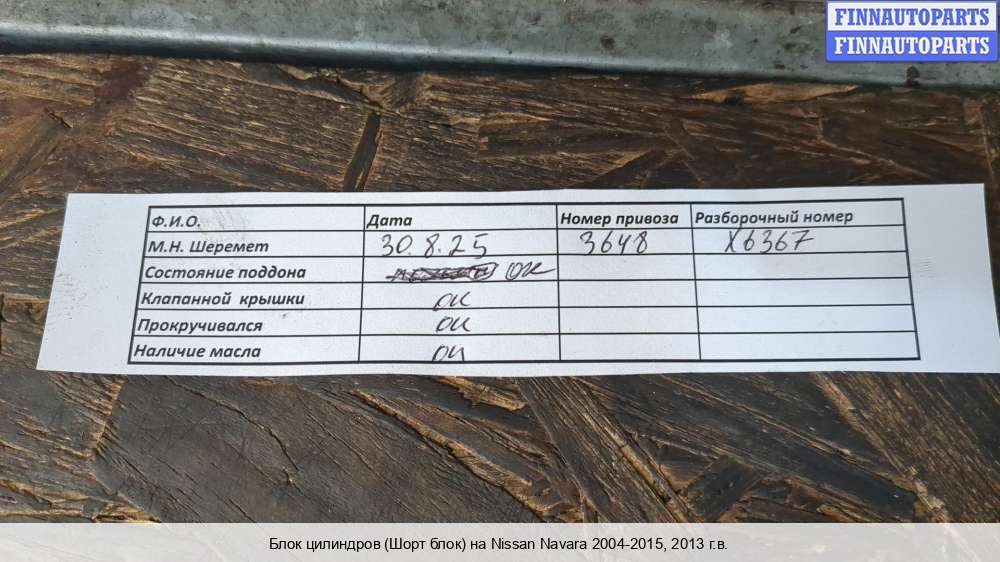 FINNAUTOPARTS
FINNAUTOPARTS
Ф.И.О. Дата Номер привоза Разборочный номер
М.Н. Шеремет 30.8.25 3648 Х6367
Состояние поддона ок
Клапанной крышки ок
Прокручивался ок
Наличие масла ок
Блок цилиндров (Шорт блок) на Nissan Navara 2004-2015, 2013 г.в.